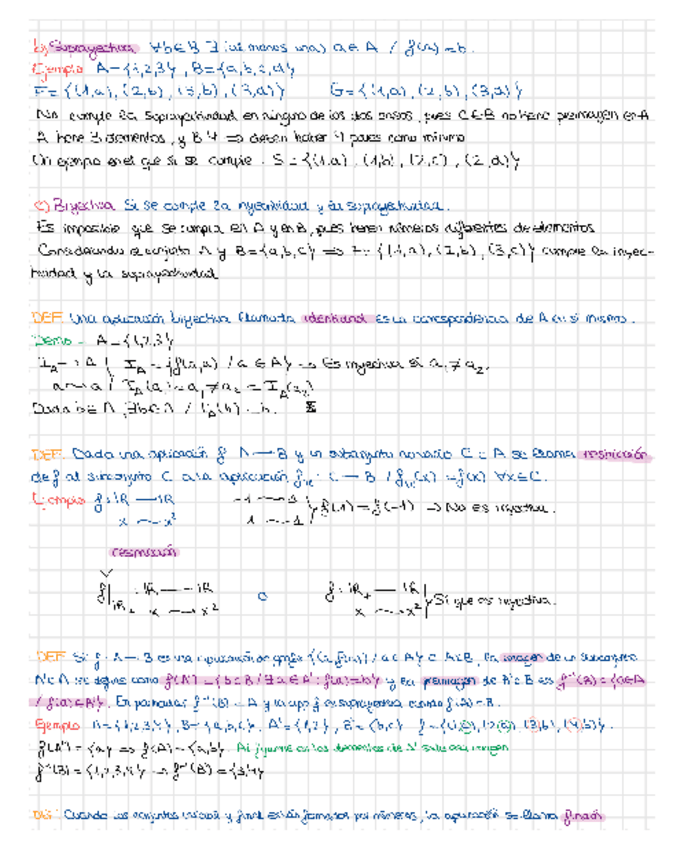 b) Suprayectiva ∀b∈B ∃ (al menos una) a∈A / f(a)=b.
Ejemplo A={1,2,3}, B={a,b,c,d}
F={(1,a),(2,b),(3,b),(3,d)} G={(1,a),(2,b),(3,d)}
No cumple la suprayectividad en ninguno de los dos casos, pues C∈B no tiene preimagen en A.
A tiene 3 elementos, y B 4 ⇒ deben haber 4 pares como mínimo
Un ejemplo en el que si se cumple: S={(1,a),(1,b),(2,c),(2,d)}
c) Biyectiva Si se cumple la inyectividad y la suprayectividad.
Es imposible que se cumpla en A y en B, pues tienen números diferentes de elementos.
Considerando el conjunto A y B={a,b,c} ⇒ {(1,a),(2,b),(3,c)} cumple la inyec-
tividad y la suprayectividad
DEF Una aplicación biyectiva llamada identidad es la correspondencia de A en sí mismo.
Demo - A={1,2,3}
I_A → A | I_A = {(a,a) / a∈A} → Es inyectiva si a₁≠a₂,
a → a / I_A(a₁)=a₁≠a₂=I_A(a₂)
Dada b∈A, ∃b∈A / I_A(b)=b.
DEF Dada una aplicación f A→B y un subconjunto no vacío C⊂A se llama restricción
de f al subconjunto C a la aplicación C→B / f(x)=f(x) ∀x∈C.
Ejemplo f:ℝ→ℝ -1 → 1
x → x² 1 → 1 } f(1)=f(-1) → No es inyectiva.
restricción
f|ℝ₊ : ℝ₊ → ℝ o f:ℝ₊ → ℝ
x → x² x → x² } Si que es inyectiva.
DEF Si f: A→B es una aplicación de grafo {(a,f(a)) / a∈A} ⊂ A×B, la imagen de un subconjunto
A'⊂A se define como f(A')={b∈B / ∃a∈A' : f(a)=b} y la preimagen de B'⊂B es f⁻¹(B')={a∈A
/ f(a)∈B'}. En particular f⁻¹(B)=A y la app f es suprayectiva cuando f(A)=B.
Ejemplo A={1,2,3,4}, B={a,b,c}, A'={1,2}, B'={b,c} f={(1,a),(2,a),(3,b),(4,b)}.
f(A')={a} ⇒ f(A)={a,b}
f⁻¹(B)={1,2,3,4} → f⁻¹(B')={3,4}
DEF Cuando los conjuntos inicial y final están formados por números, la aplicación se llama función